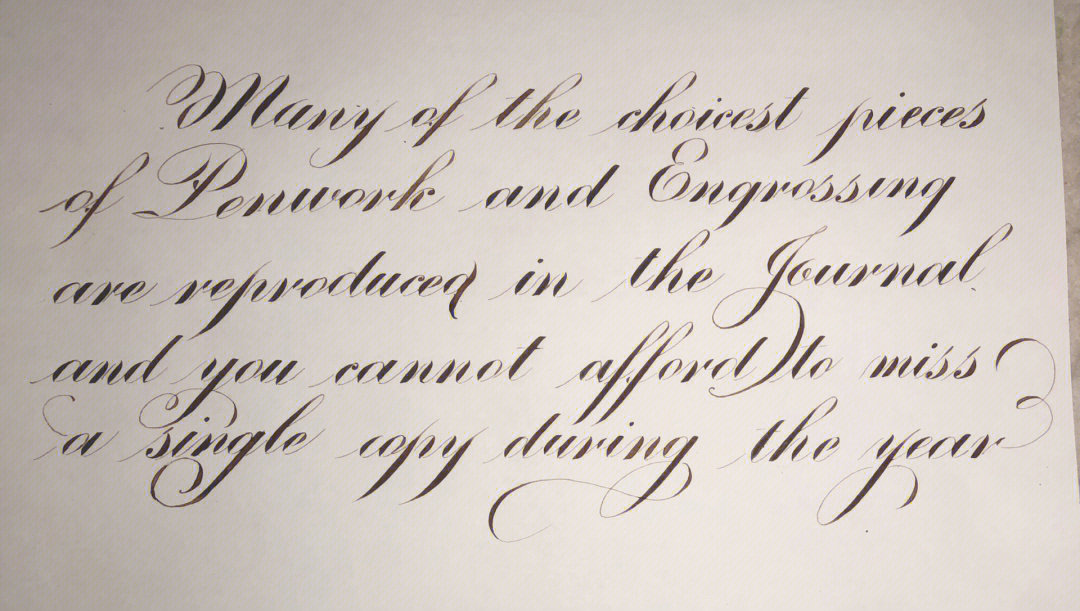 Many of the choicest pieces
of Penwork and Engrossing
are reproduced in the Journal
and you cannot afford to miss
a single copy during the year